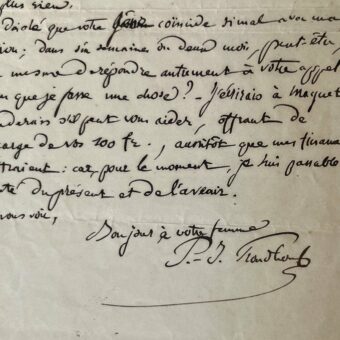 plus rien.
désolé que votre gêne coïncide si mal avec ma
ion; dans six semaines ou deux mois, peut-être,
mesure de répondre autrement à votre appel
que je fasse une chose? – J'écrirais à Maquet
derais s'il peut vous aider, offrant de
arge de vos 100 fr., aussitôt que mes finances
traient: car, pour le moment, je suis passable
té du présent et de l'avenir.
vous voir,
Bonjour à votre femme
P.-J. Proudhon